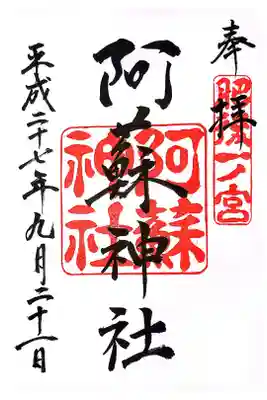 奉拝
一ノ宮
阿蘇神社
阿蘇神社
平成二十七年九月二十一日